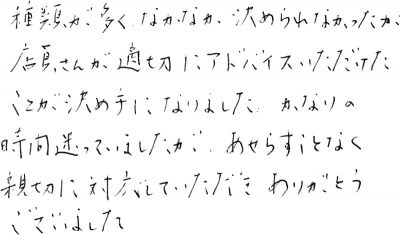 種類が多く、なかなか決められなかったが
店員さんが適切にアドバイスいただけた
ことが決め手になりました。かなりの
時間迷っていましたが、あせらすことなく
親切に対応していただき ありがとう
ございました